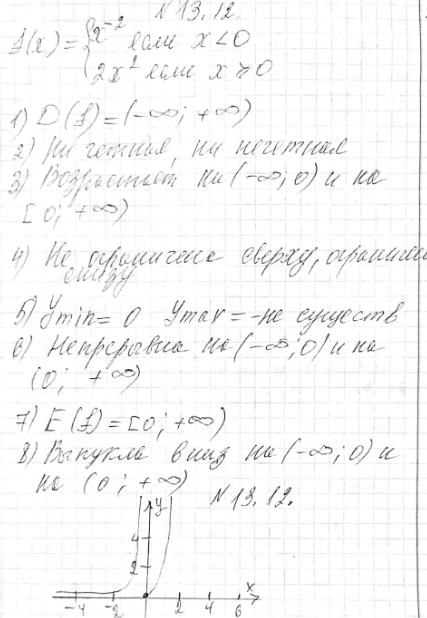 N 13.12.
f(x) = { x⁻² если x < 0
2x² если x ⩾ 0
1) D(f) = (-∞; +∞)
2) Ни четная, ни нечетная
3) Возрастает на (-∞; 0) и на
[0; +∞)
4) Не ограничена сверху,
снизу
5) Ymin = 0 Ymax = -не существ
6) Непрерывна на (-∞; 0) и на
(0; +∞)
7) E(f) = [0; +∞)
8) Выпукла вниз на (-∞; 0) и
на (0; +∞)
N 13.12.
y
4
2
x
-4 -2 2 4 6